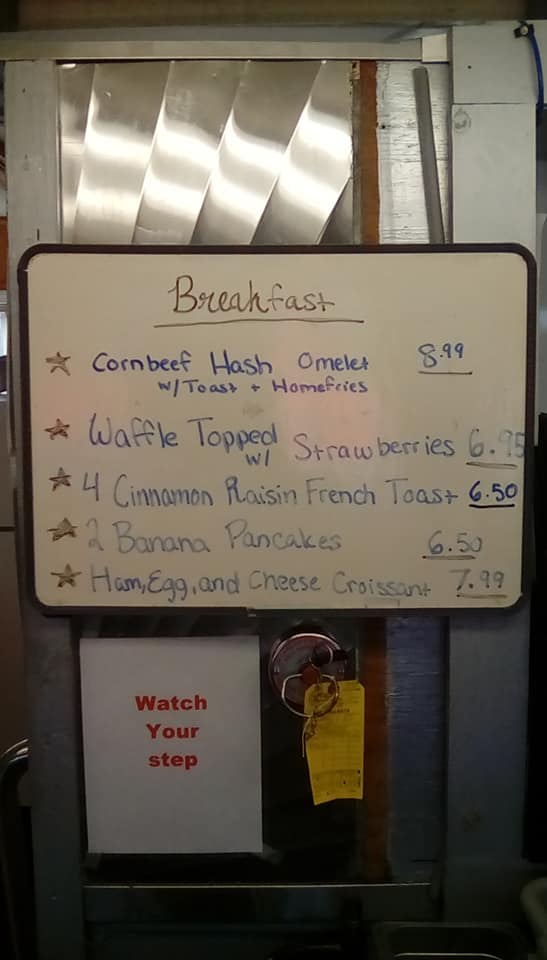 Breakfast
Cornbeef Hash Omelet 8.99
w/Toast + Homefries
Waffle Topped w/ Strawberries 6.95
4 Cinnamon Raisin French Toast 6.50
2 Banana Pancakes 6.50
Ham, Egg, and Cheese Croissant 7.99
Watch
Your
step